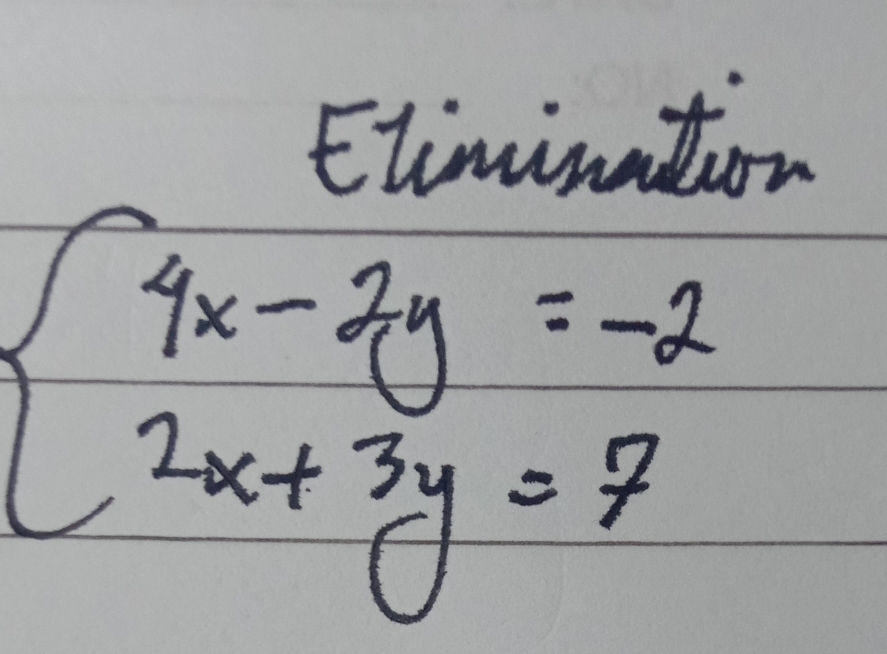 Elimination
4x - 2y = -2
2x + 3y = 7